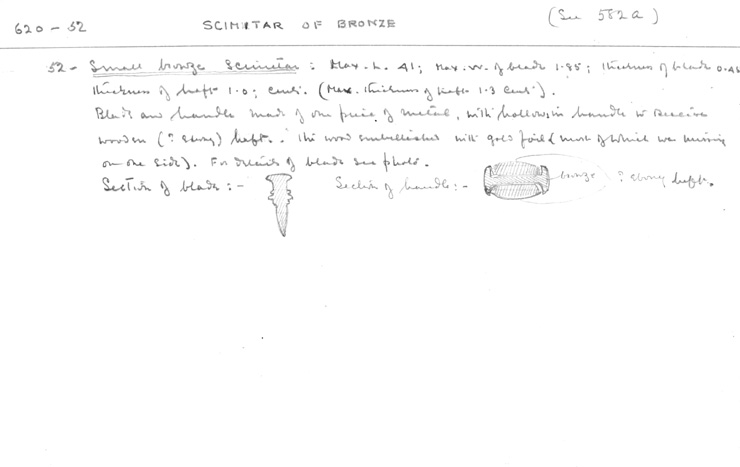 620-52 SCIMITAR OF BRONZE (See 582a)
52- Small bronze Scimitar: Max. L. 41; Max. W. of blade 1.85; thickness of blade 0.45
thickness of haft 1.0; cents. (Max. thickness of haft 1.3 cent).
Blade and handle made of one piece of metal, with hollows in handle to receive
wooden (? ebony) haft. The wood embellished with gold foil (most of which was missing
on one side). For details of blade see photo.
Section of blade:- Section of handle:- bronze ? ebony haft.